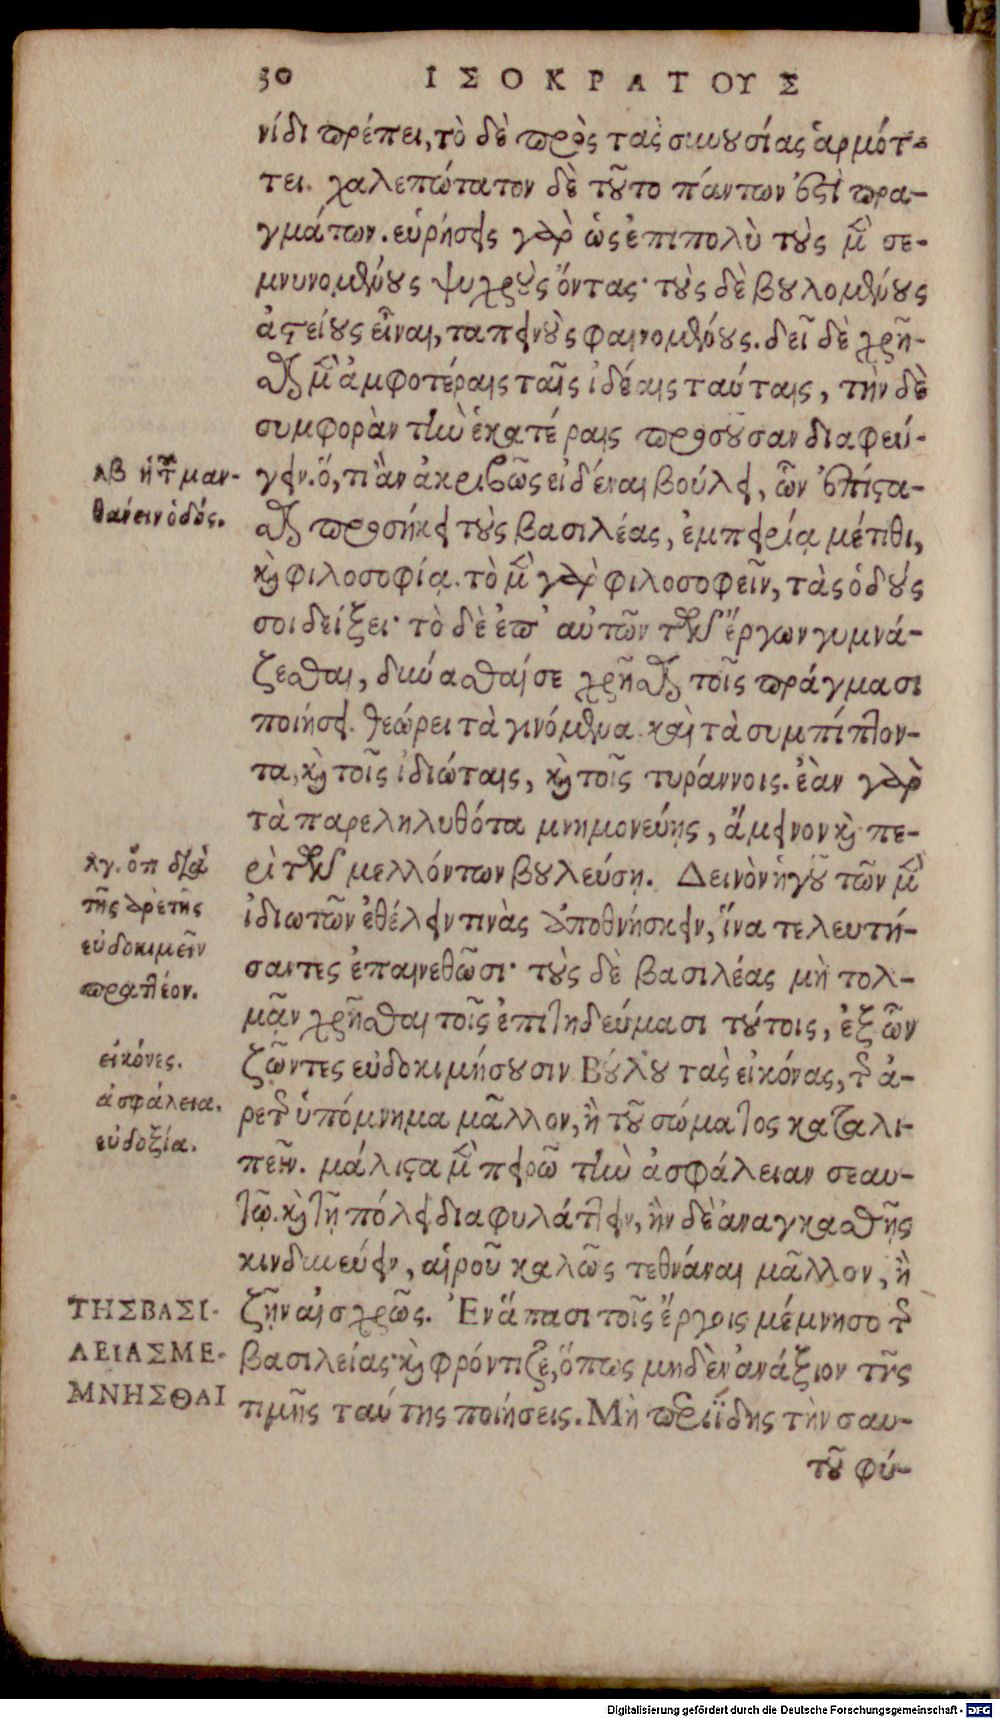 30 ΙΣΟΚΡΑΤΟΥΣ
νίδι πρέπει, τὸ δὲ πρὸς τὰς συνουσίας ἁρμότ-
τει. χαλεπώτατον δὲ τοῦτο πάντων ἐστὶ πρα-
γμάτων. εὑρήσεις γὰρ ὡς ἐπιπολὺ τοὺς μὲν σε-
μνυνομένους ψυχροὺς ὄντας· τοὺς δὲ βουλομένους
ἀστείους εἶναι, ταπεινοὺς φαινομένους. δεῖ δὲ χρῆ-
σθαι μὲν ἀμφοτέραις ταῖς ἰδέαις ταύταις, τὴν δὲ
συμφορὰν τὴν ἑκατέραις προσοῦσαν διαφεύ-
γειν. ὅ, τι ἂν ἀκριβῶς εἰδέναι βούλει, ὧν ἐπίστα-
σθαι προσήκει τοὺς βασιλέας, ἐμπειρίᾳ μέτιθι,
καὶ φιλοσοφίᾳ. τὸ μὲν γὰρ φιλοσοφεῖν, τὰς ὁδούς
σοι δείξει· τὸ δὲ ἐπ' αὐτῶν τῶν ἔργων γυμνά-
ζεσθαι, δύνασθαί σε χρῆσθαι τοῖς πράγμασι
ποιήσει. θεώρει τὰ γινόμενα καὶ τὰ συμπίπτον-
τα, καὶ τοῖς ἰδιώταις, καὶ τοῖς τυράννοις. ἐὰν γὰρ
τὰ παρεληλυθότα μνημονεύῃς, ἄμεινον καὶ πε-
ρὶ τῶν μελλόντων βουλεύσῃ. Δεινὸν ἡγοῦ τῶν μὲν
ἰδιωτῶν ἐθέλειν τινὰς ἀποθνήσκειν, ἵνα τελευτή-
σαντες ἐπαινεθῶσι· τοὺς δὲ βασιλέας μὴ τολ-
μᾶν χρῆσθαι τοῖς ἐπιτηδεύμασι τούτοις, ἐξ ὧν
ζῶντες εὐδοκιμήσουσιν. Βούλου τὰς εἰκόνας, τῆς ἀ-
ρετῆς ὑπόμνημα μᾶλλον, ἢ τοῦ σώματος καταλι-
πεῖν. μάλιστα μὲν πειρῶ τὴν ἀσφάλειαν σεαυ-
τῷ. καὶ τῇ πόλει διαφυλάττειν, ἢν δὲ ἀναγκασθῇς
κινδυνεύειν, αἱροῦ καλῶς τεθνάναι μᾶλλον, ἢ
ζῆν αἰσχρῶς. Ἐν ἅπασι τοῖς ἔργοις μέμνησο τῆς
βασιλείας· καὶ φρόντιζε, ὅπως μηδὲν ἀνάξιον τῆς
τιμῆς ταύτης ποιήσεις. Μὴ περιίδῃς τὴν σαυ-
τοῦ φύ-
λβ ἡ τοῦ μαν-
θάνειν ὁδός.
λγ. ὅτι διὰ
τῆς ἀρετῆς
εὐδοκιμεῖν
πρακτέον.
εἰκόνες.
ἀσφάλεια.
εὐδοξία.
ΤΗΣ ΒΑΣΙ-
ΛΕΙΑΣ ΜΕ-
ΜΝΗΣΘΑΙ
Digitalisierung gefördert durch die Deutsche Forschungsgemeinschaft - DFG